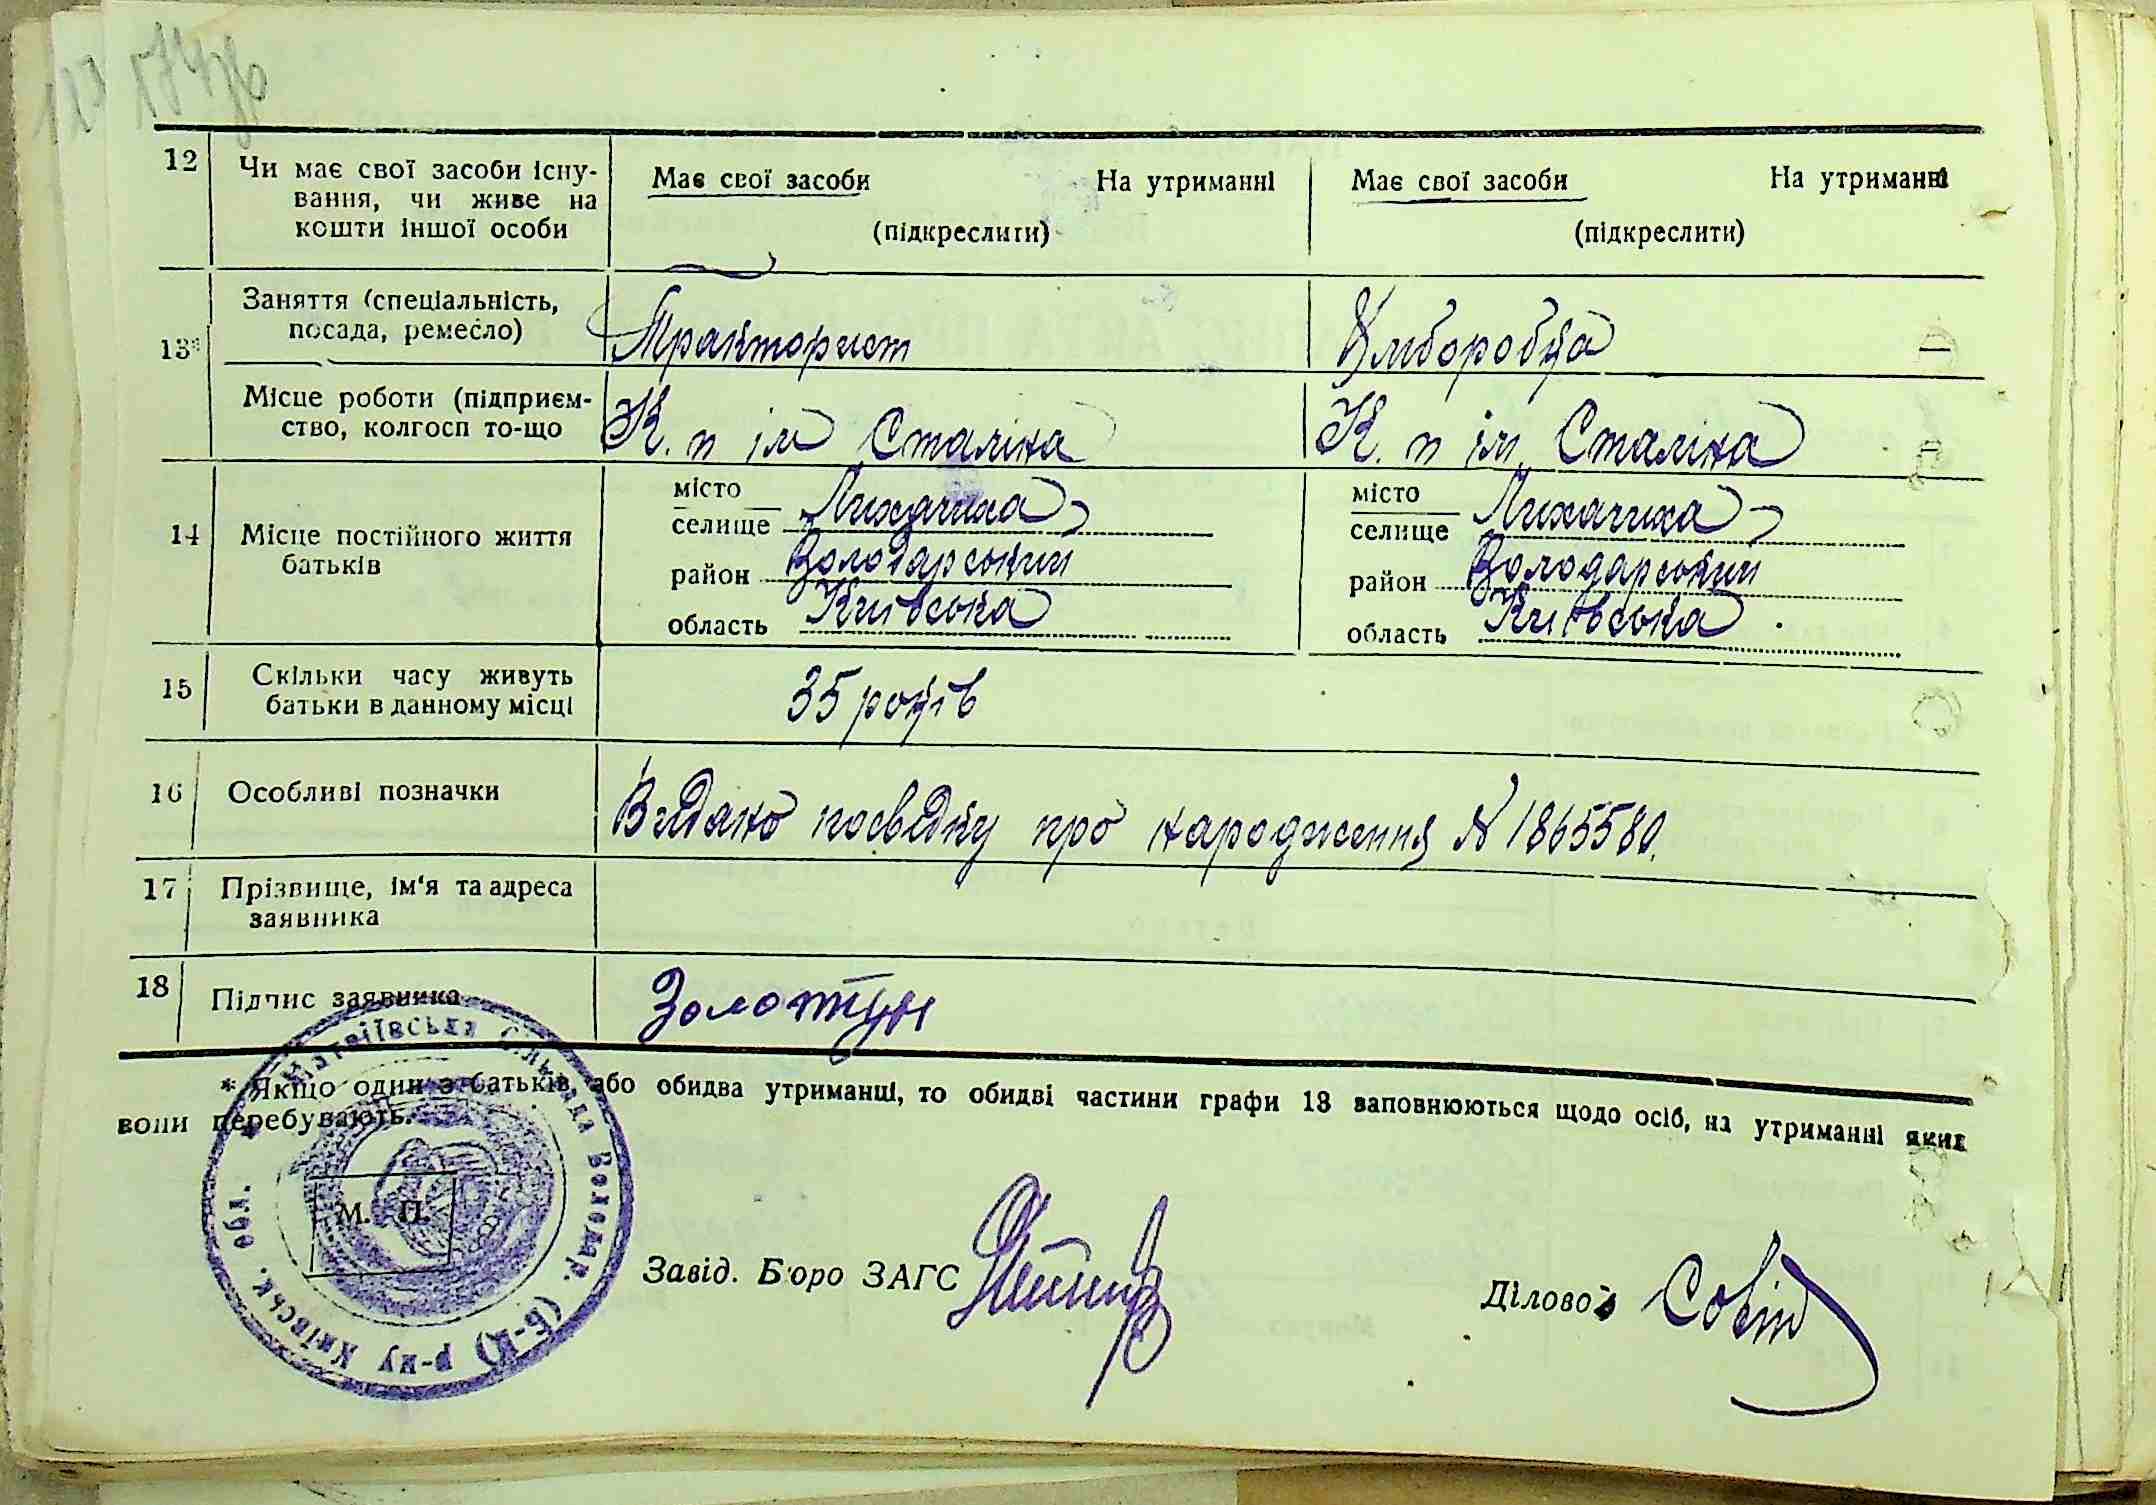 12 Чи має свої засоби існу-
вання, чи живе на
кошти іншої особи
Має свої засоби На утриманні
(підкреслити)
Має свої засоби На утриманні
(підкреслити)
13* Заняття (спеціальність,
посада, ремесло)
Тракторист
Хліборобка
Місце роботи (підприєм-
ство, колгосп то-що
К. п ім Сталіна
К. п ім Сталіна
14 Місце постійного життя
батьків
місто
селище Лихачиха
район Володарський
область Київська
місто
селище Лихачиха
район Володарський
область Київська
15 Скільки часу живуть
батьки в данному місці
35 років
16 Особливі позначки
Видано посвідку про народження № 1865580.
17 Прізвище, ім'я та адреса
заявника
18 Підпис заявника
Золотун
* Якщо один з батьків, або обидва утриманці, то обидві частини графи 13 заповнюються щодо осіб, на утриманні яких
вони перебувають.
М. П.
Матвіївська Сільрада Володар. (Б-Ц) р-ну Київськ. обл.
Завід. Бюро ЗАГС
Діловод